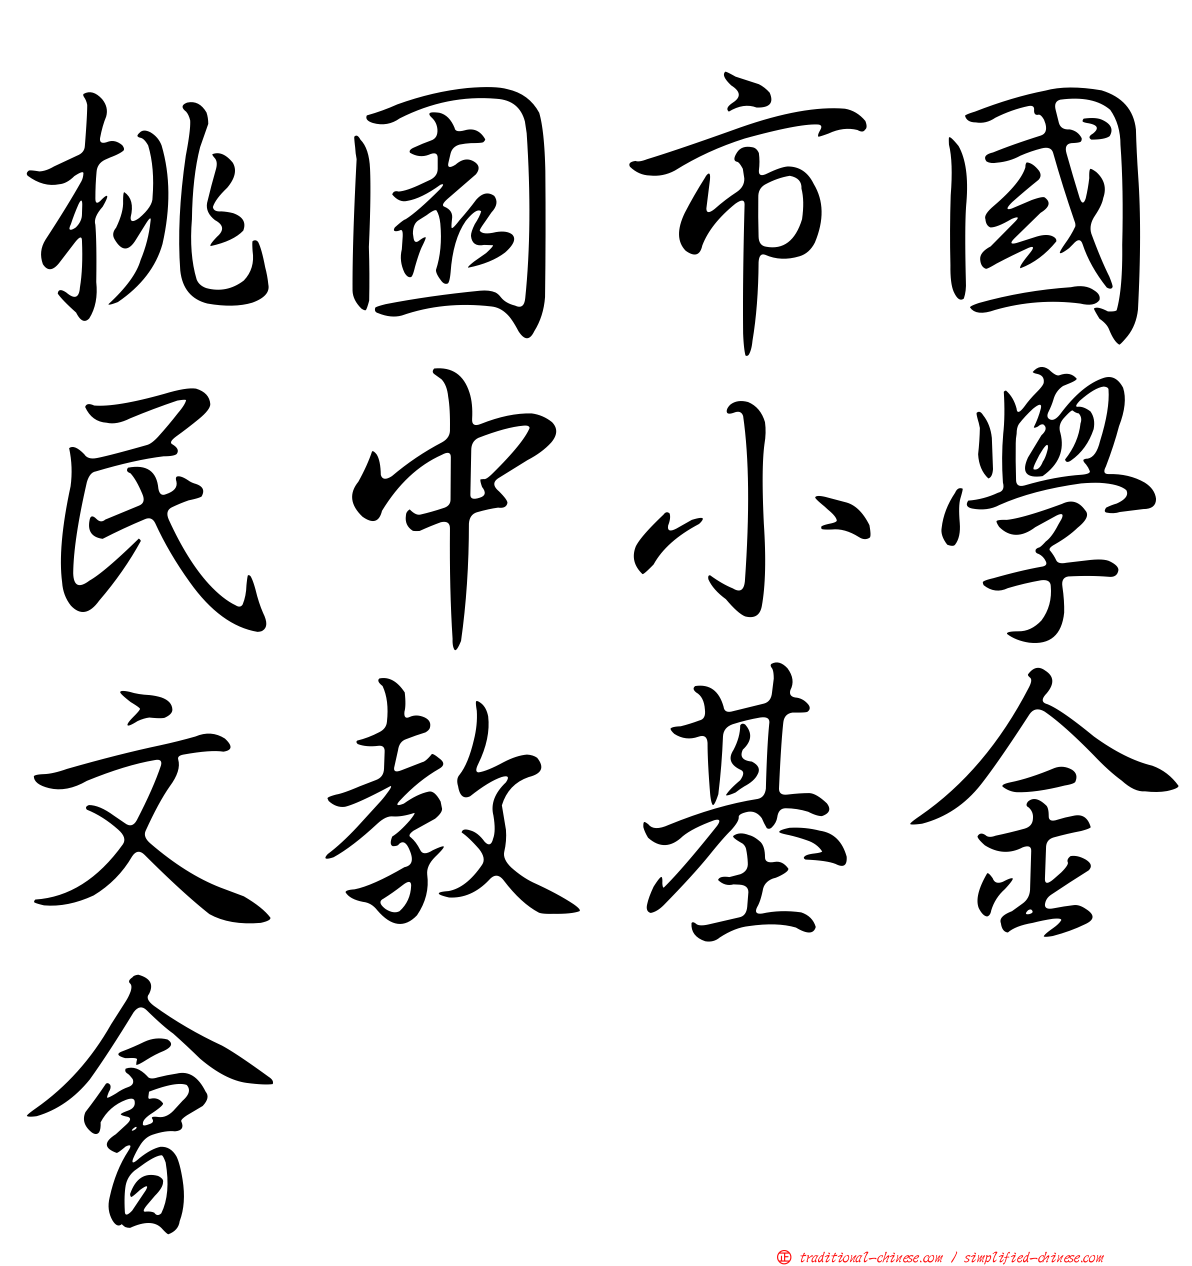 桃園市國
民中小學
文教基金
會
㊣ traditional-chinese.com / simplified-chinese.com